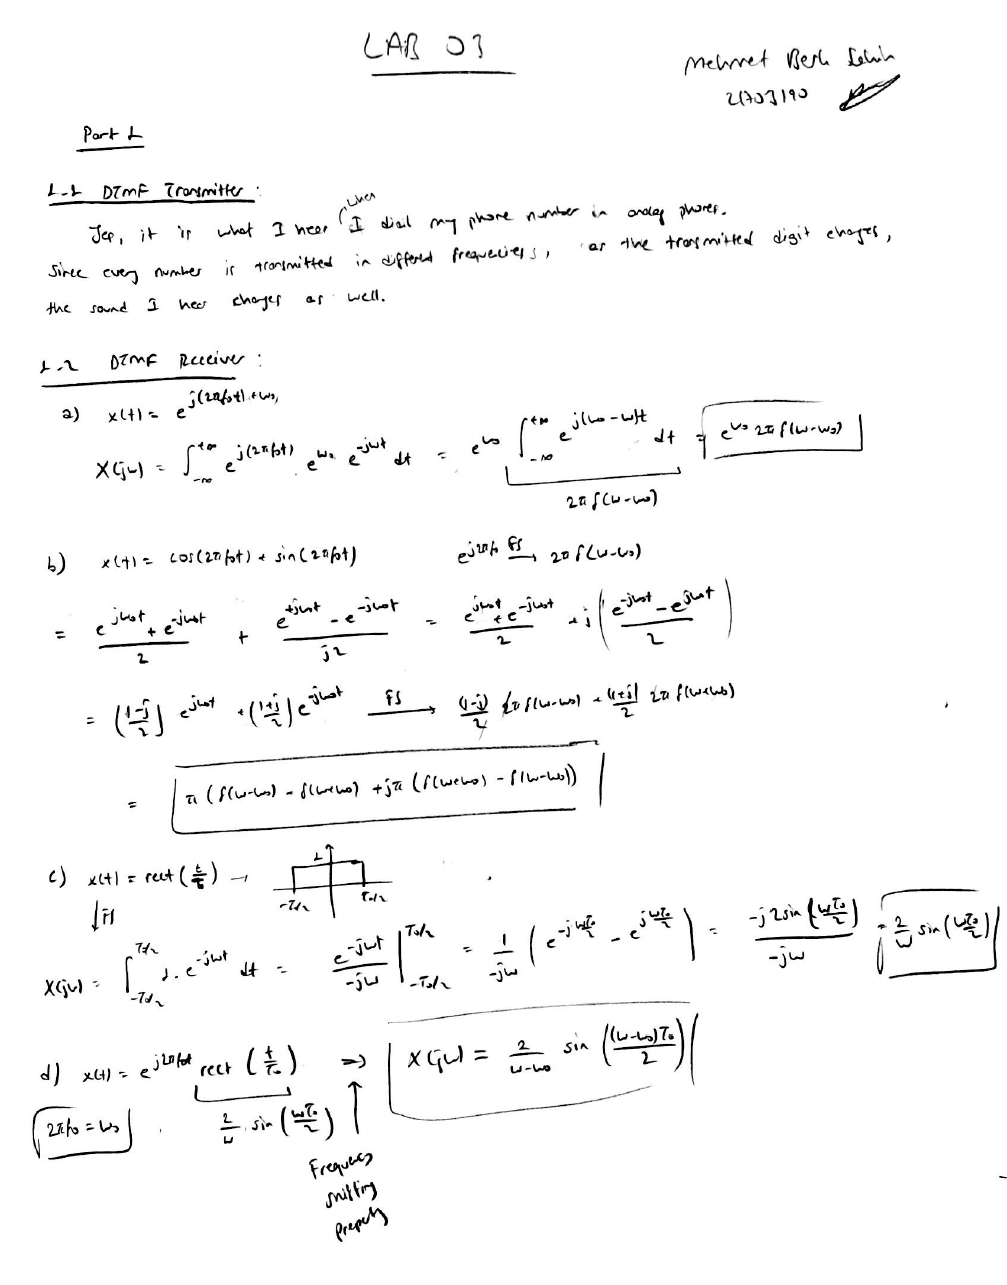 LAB 03
Mehmet Berk
21703190
Part 1
1-1 DTMF Transmitter :
Yes, it is what I hear when I dial my phone number in analog phones.
Since every number is transmitted in different frequencies, as the transmitted digit changes,
the sound I hear changes as well.
1-2 DTMF Receiver :
a) x(t) = e^{j(2πf₀t)+w₀}
X(jw) = ∫_{-∞}^{+∞} e^{j(2πf₀t)} e^{w₀} e^{-jwt} dt = e^{w₀} ∫_{-∞}^{+∞} e^{j(w₀-w)t} dt = e^{w₀} 2π δ(w-w₀)
2π δ(w-w₀)
b) x(t) = cos(2πf₀t) + sin(2πf₀t) e^{j2πf₀} FS → 2π δ(w-w₀)
= (e^{jw₀t} + e^{-jw₀t})/2 + (e^{+jw₀t} - e^{-jw₀t})/j2 = (e^{jw₀t} + e^{-jw₀t})/2 + j((e^{-jw₀t} - e^{jw₀t})/2)
= ((1-j)/2) e^{jw₀t} + ((1+j)/2) e^{-jw₀t} FS → (1-j)/2 2π δ(w-w₀) + (1+j)/2 2π δ(w+w₀)
= π (δ(w-w₀) - δ(w+w₀) + jπ (δ(w+w₀) - δ(w-w₀))
c) x(t) = rect(t/T₀) → 1 -T₀/2 T₀/2
↓ FS
X(jw) = ∫_{-T₀/2}^{T₀/2} 1. e^{-jwt} dt = e^{-jwt}/-jw |_{-T₀/2}^{T₀/2} = 1/-jw (e^{-jwT₀/2} - e^{jwT₀/2}) = -j2sin(wT₀/2)/-jw = 2/w sin(wT₀/2)
d) x(t) = e^{j2πf₀t} rect(t/T₀) ⇒ X(jw) = 2/(w-w₀) sin((w-w₀)T₀/2)
2πf₀ = w₀ 2/w . sin(wT₀/2)
Frequency
shifting
property